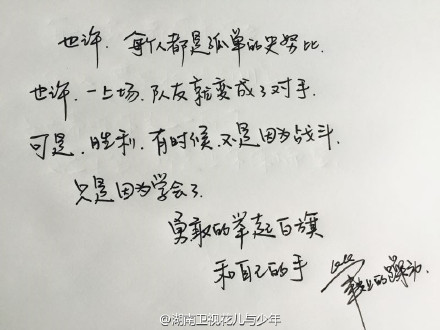 也许，每个人都是孤单的史努比
也许，一上场，队友就变成了对手，
可是，胜利，有时候，不是因为战斗，
只是因为学会了
勇敢的举起白旗
和自己的手
的
@湖南卫视花儿与少年